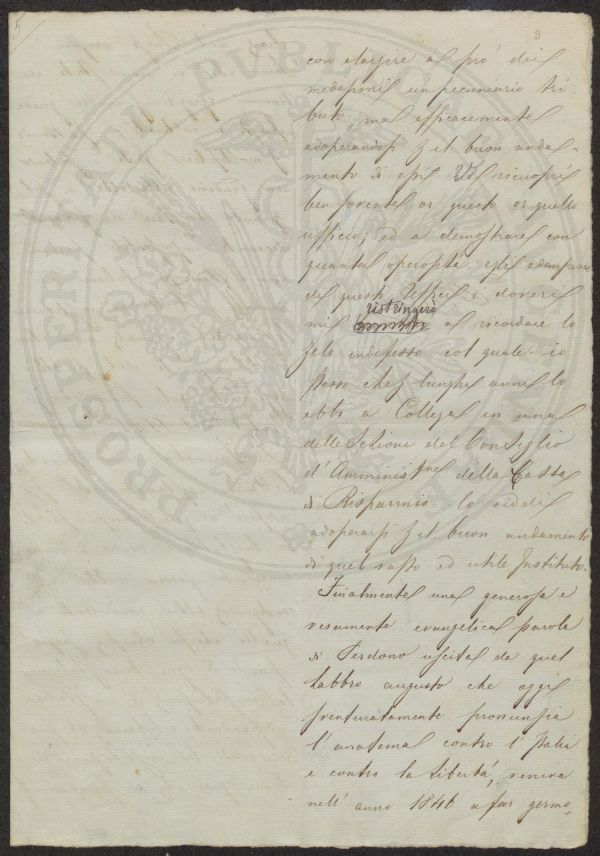 5
9
con elargire al pró dei
medesimi un pecuniario tri-
buto, ma efficacemente
adoperandosi p il buon anda-
mento di essi. Ei ricuoprí
ben sovente or questo or quello
ufficio; ed a dimostrare con
quanta operosità egli adempisse
a questi Uffici, dovrei
mi ristringeró al ricordare lo
zelo indefesso col quale io
stesso che lunghi anni lo
ebbi a Collega in una
delle Sezioni del Consiglio
d'Amministrne della Cassa
di Risparmio lo viddi
adoperarsi p il buon andamento
di quel vasto ed utile Instituto.
Finalmente una generosa e
veramente evangelica parola
di Perdono uscita da quel
labbro augusto che oggi
sventuratamente pronunzia
l'anatema contro l'Italia
e contro la libertá, veniva
nell'anno 1846 a far germo-
PROSPERITATI PUBLICAE